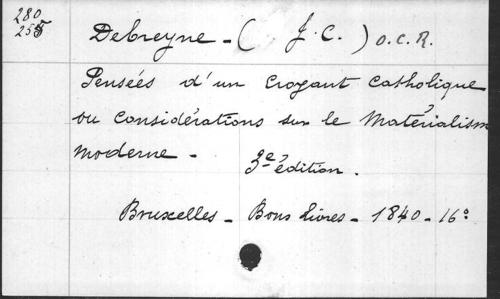 280
255
Debreyne - ( J. C. ) O. C. R.
Pensées d'un Croyant Catholique
ou Considérations sur le Matérialism
moderne - 3e édition.
Bruxelles - Bons Livres - 1840 - 16°